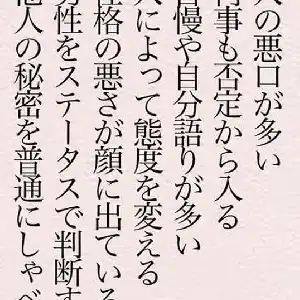 人の悪口が多い
何事も否定から入る
自慢や自分語りが多い
人によって態度を変える
性格の悪さが顔に出ている
男性をステータスで判断す
他人の秘密を普通にしゃべ